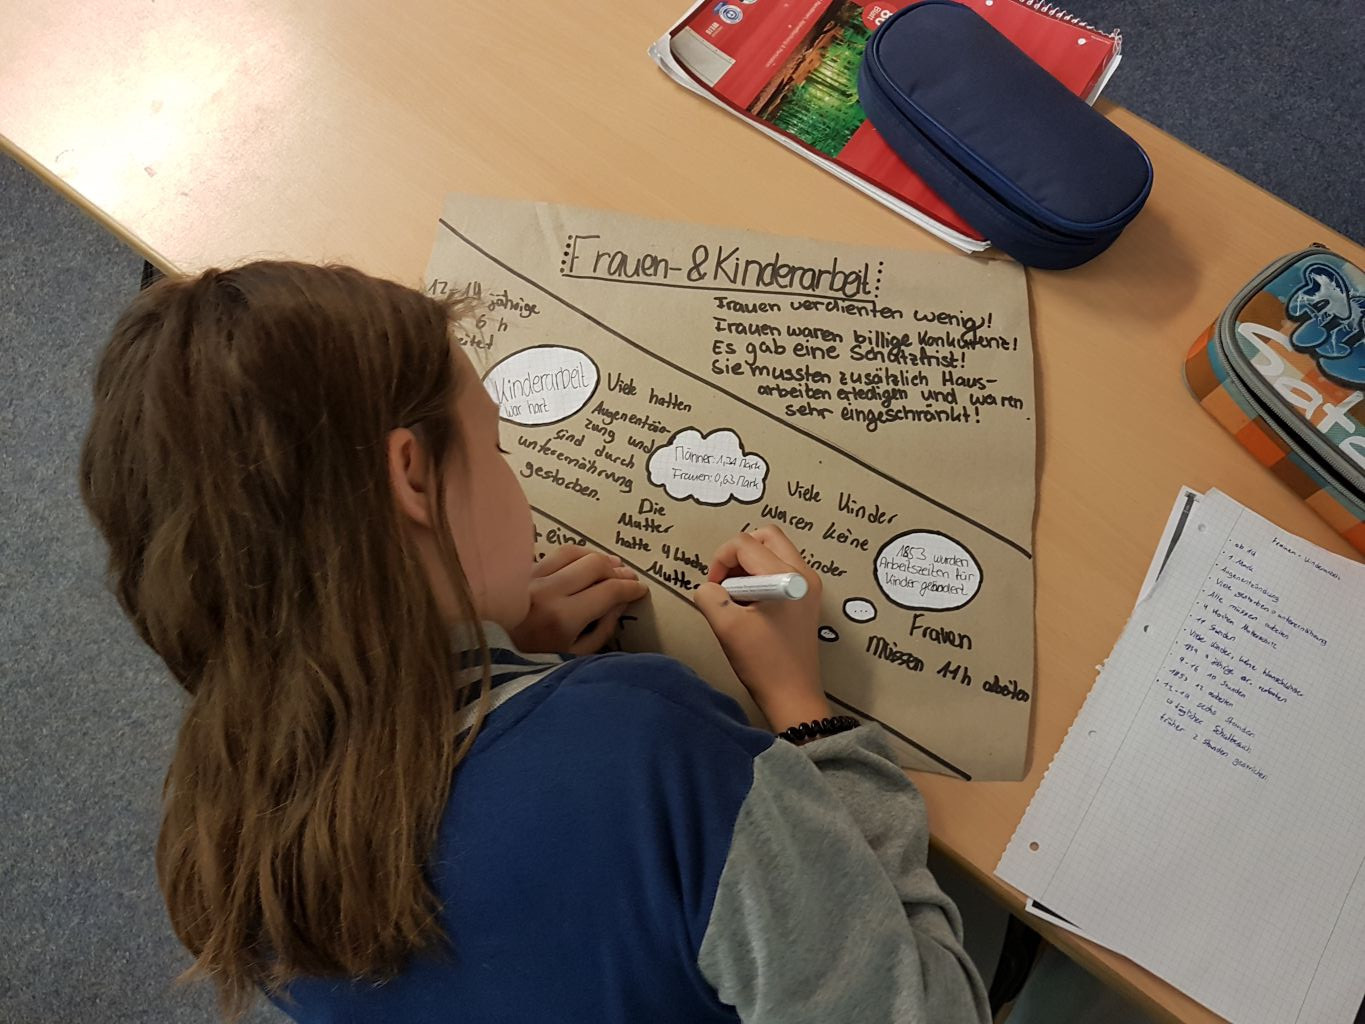 Frauen- & Kinderarbeit
12-14 jährige
6 h
Frauen verdienten wenig!
Frauen waren billige Konkurenz!
Es gab eine Schutzfrist!
Sie mussten zusätzlich Haus-
arbeiten erledigen und waren
sehr eingeschränkt!
Kinderarbeit
war hart
Viele hatten
Augenentzün-
zung und
sind durch
unterernährung
gestorben.
Männer: 1,24 Mark
Frauen: 0,63 Mark
Die
Mutter
hatte 4 Woche
Mutter
Viele Kinder
waren keine
kinder
1853 wurden
Arbeitszeiten für
Kinder geändert
Frauen
müssen 11h arbeiten
eine
Sate
Blatt
ab 14
1 Mark
Augenentzündung
Viele gestorben
unterernährung
Alle müssen arbeiten
4 Wochen
11 Stunden
Viele Kinder, keine
9-16 10 Stunden
1853 12 arbeiten
12-14 sechs Stunden
täglicher Schulbesuch
früher 2 Stunden gestrichen